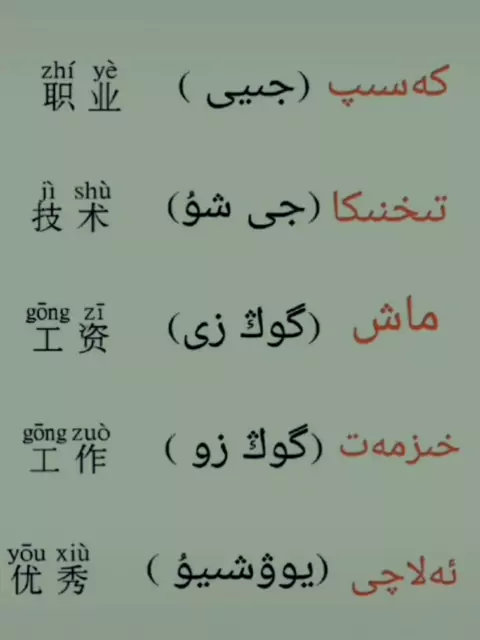 zhí yè
职业 (جىيى) كەسىپ
jì shù
技术 (جى شۇ) تىخنىكا
gōng zī
工资 (گوڭ زى) ماش
gōng zuò
工作 (گوڭ زو) خىزمەت
yōu xiù
优秀 (يوۋشىيۇ) ئەلاچى